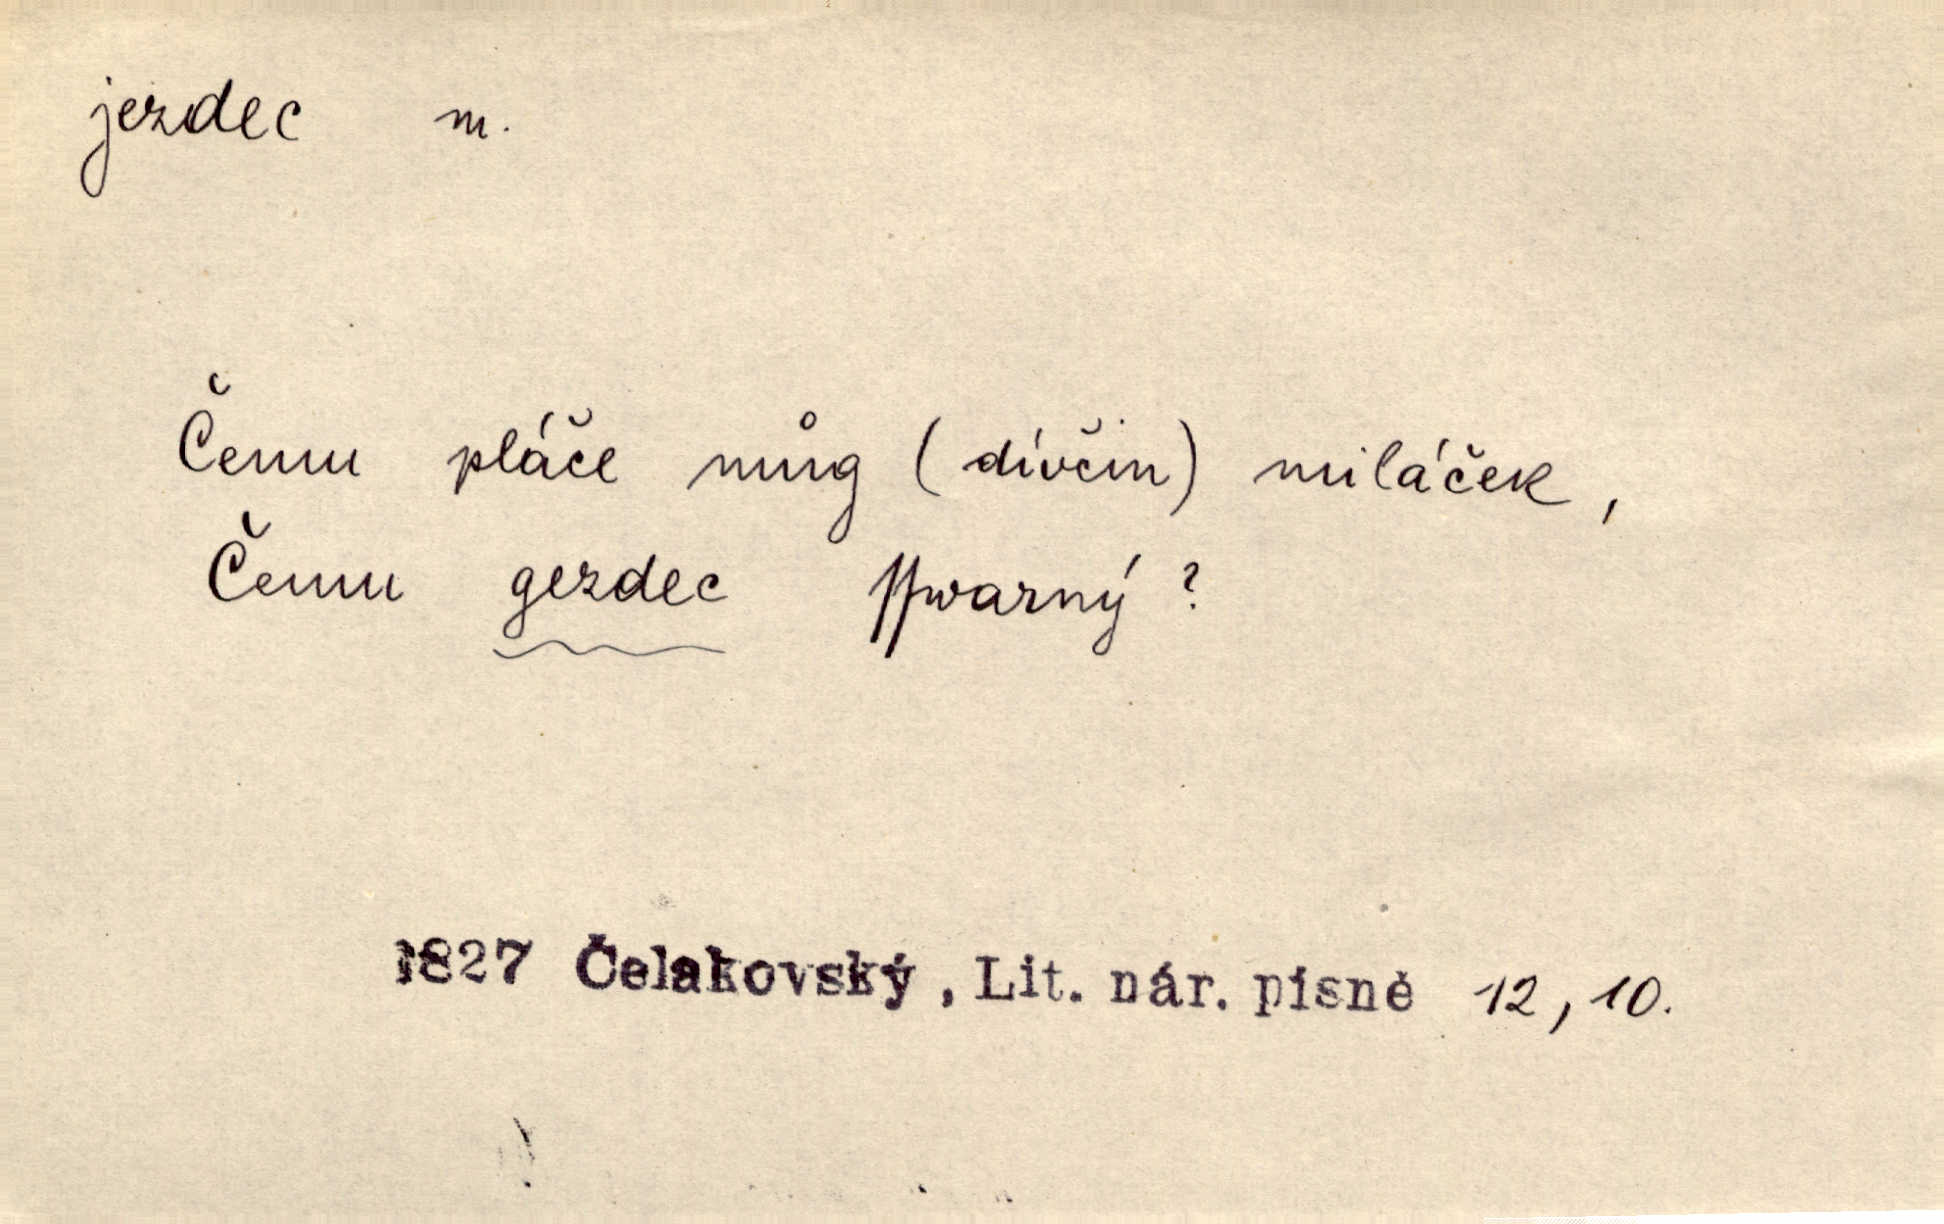 jezdec m.
Čemu pláče můg (dívčin) miláček,
Čemu gezdec ſſwarný?
1827 Čelakovský, Lit. nár. písně 12, 10.